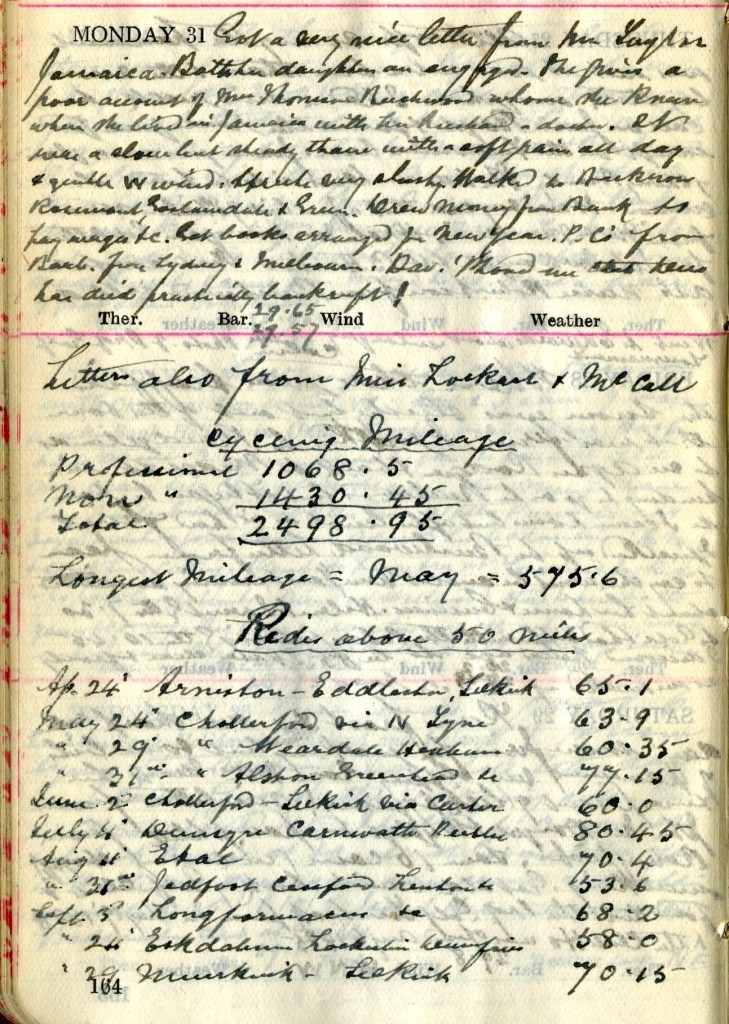 MONDAY 31 Got a very nice letter from Mrs Taylor
Jamaica. Both her daughters are engaged. She gives a
poor account of Mrs Thomson whom she knew
when she lived in Jamaica with her husband a doctor. It
was a slow but steady thaw with a soft rain all day
& gentle W wind. Streets very slushy. Walked to
Rosemount, & Green. Drew money from Bank to
pay wages &c. Got books arranged for New Year. P.C's from
Barb. from Sydney & Melbourne. Dav. 'Phoned me
has died practically bankrupt!
Ther. Bar. 29.65 Wind Weather
29.57
Letters also from Miss Lockart & McCall
Cycling Mileage
Professional 1068.5
Non " 1430.45
Total 2498.95
Longest Mileage = May = 575.6
Rides above 50 miles
Ap. 24 Arniston - Eddleston, Selkirk 65.1
May 24 Chollerford via N Tyne 63.9
" 29 " Weardale Hexham 60.35
" 31 " Alston Greenhead &c 77.15
June 2 Chollerford - Selkirk via Carter 60.0
July 4 Dunsyre Carnwath 80.45
Aug 4 Etal 70.4
" 31 Jedfoot Cessford 53.6
Sept. 3 Longformacus &c 68.2
" 24 Lockerbie Dumfries 58.0
" 29 Muirkirk - Selkirk 70.15
164